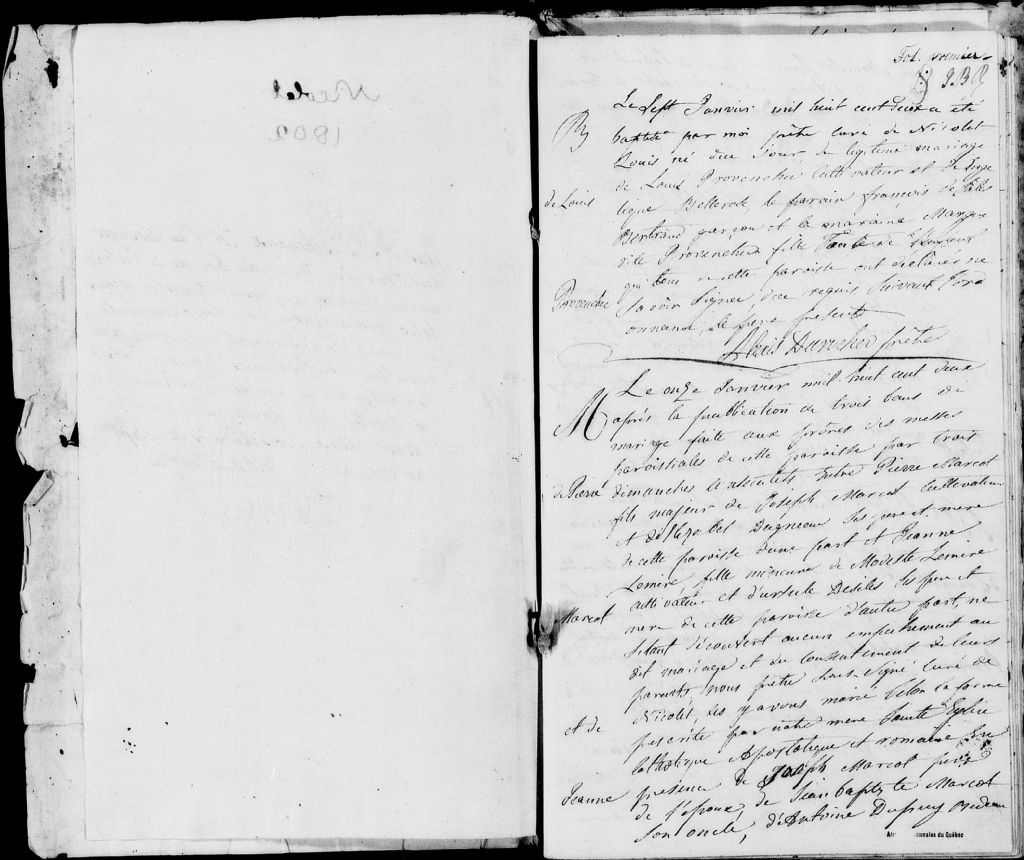 Nicolet
1802
Fol. premier
Le Sept Janvier mil huit cent deux a été
B
baptisé par moi prêtre curé de Nicolet
Louis né du jour du légitime mariage
de Louis Provencher cultivateur et de
de Louis
Bellerose, le parain francois
Bertrand garçon et la maraine Margue
rite Provencher fille tante de
qui tous de cette paroisse ont déclarés ne
Provencher
savoir signer de ce requis suivant l'ord
onnance, le pere present
Alexis Durocher prêtre
Le onze Janvier mil huit cent deux
M
après la publication de trois bans de
mariage faite aux prônes des messes
paroissiales de cette paroisse par trois
de Pierre
dimanches consécutifs Entre Pierre Marcot
fils majeur de Joseph Marcot cultivateur
et d'Isabel Daigneau ses pere et mere
de cette paroisse d'une part et Jeanne
Lemire fille mineure de Modeste Lemire
cultivateur et d'ursule Desilets ses pere et
Marcot
mere de cette paroisse d'autre part, ne
s'etant découvert aucun empêchement au
dit mariage et du consentement de leurs
parents nous prêtre sous-signé curé de
Nicolet, les y avons marié selon la forme
et de
prescrite par notre mere Sainte Eglise
Catholique Apostolique et romaine En
presence de Joseph Marcot pere
Jeanne
de l'epoux, de Jean baptiste Marcot
son oncle, d'Antoine Dupuy
nationales du Québec